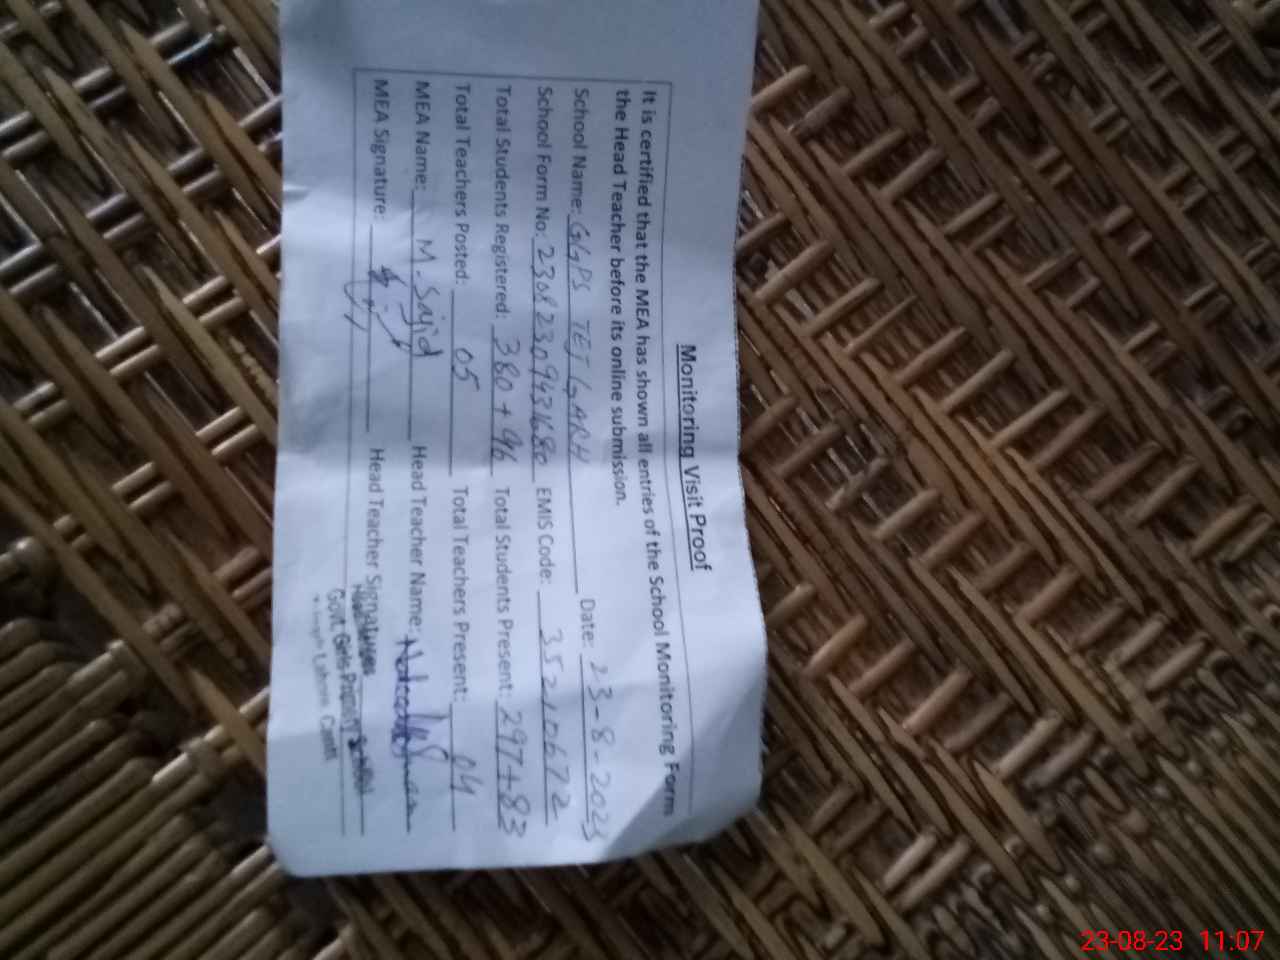 Monitoring Visit Proof
It is certified that the MEA has shown all entries of the School Monitoring Form
the Head Teacher before its online submission.
School Name: GGPS TEJ GARH Date: 23-8-2023
School Form No: EMIS Code: 35210672
Total Students Registered: 380+96 Total Students Present: 297+83
Total Teachers Posted: 05 Total Teachers Present: 04
MEA Name: M. Sajid Head Teacher Name:
MEA Signature: Head Teacher Signature:
Govt. Girls Primary School
Lahore Cantt
23-08-23 11:07